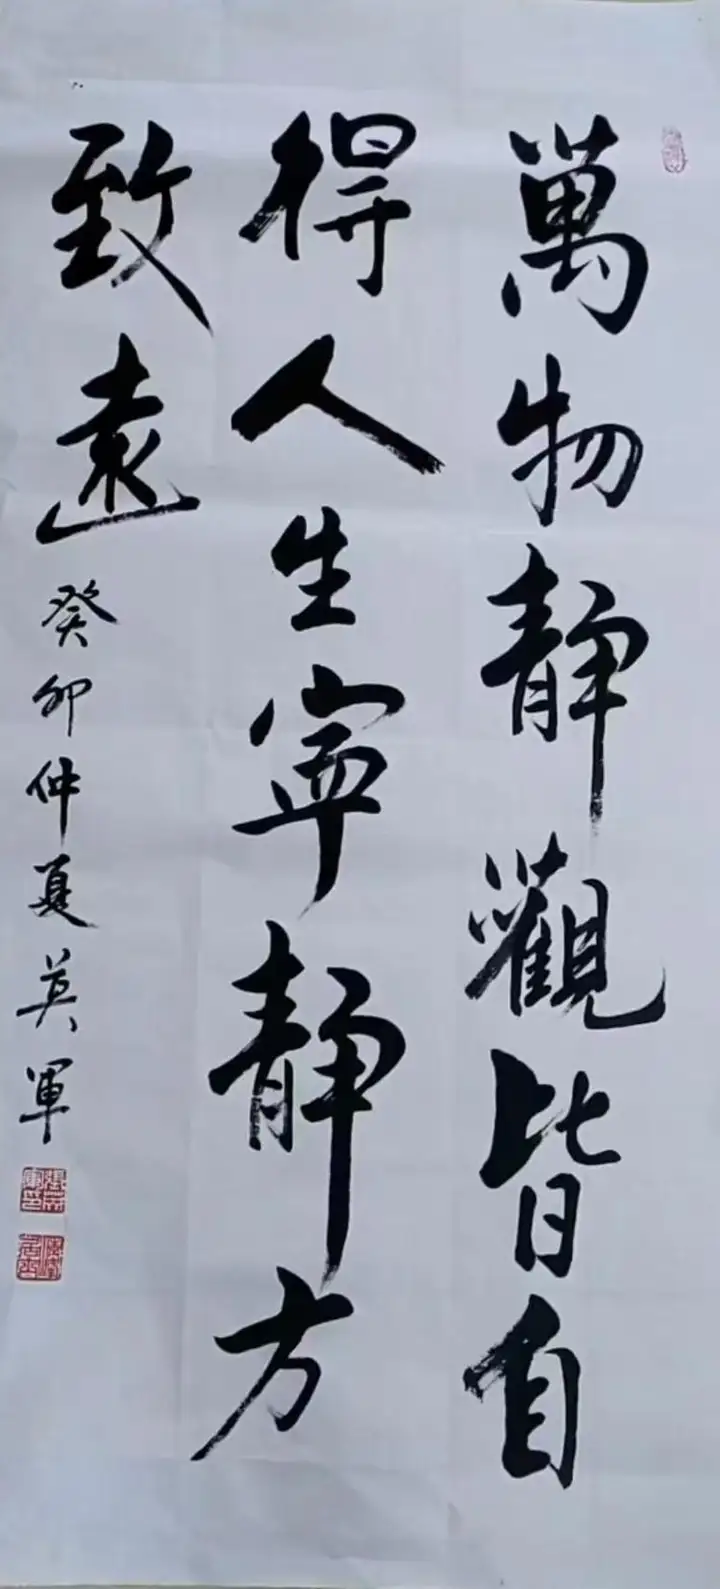 萬物靜觀皆自
得人生寧靜方
致遠
癸卯仲夏英軍